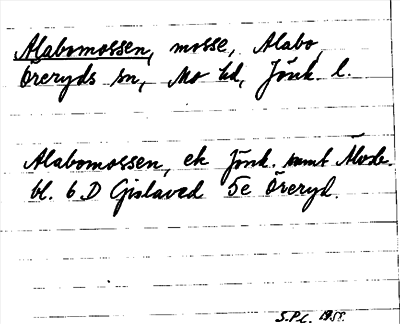 Alabomossen, mosse, Alabo,
Öreryds sn, Mo hd, Jönk. l.
Alabomossen, ek Jönk. samt Älvsb.
bl. 6 D Gislaved 5e Öreryd.
S.P.C. 1955